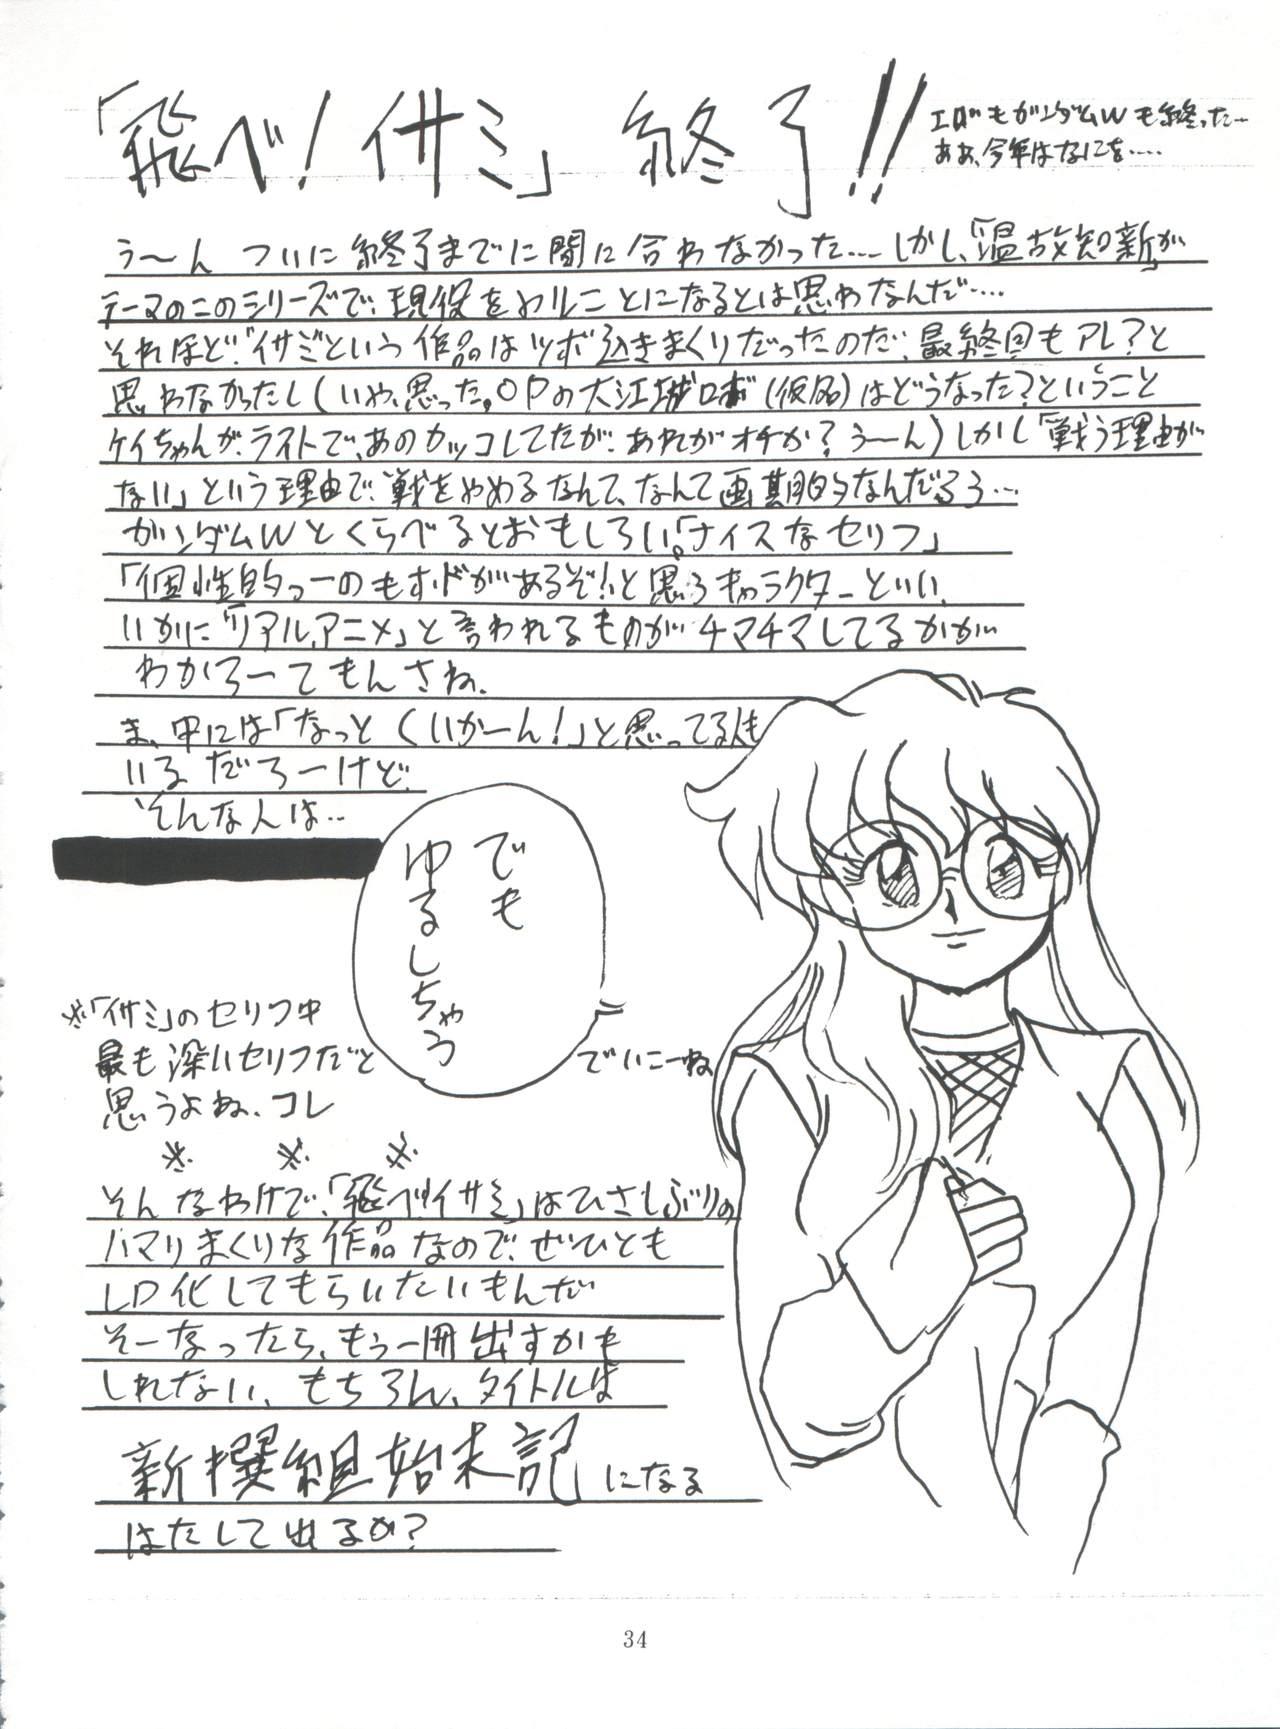 「飛べ!イサミ」終了!!
エヴァもガンダムWも終った…
ああ、今年はなにを….
う〜ん ついに終了までに間に合わなかった….しかし、「温故知新」が
テーマのこのシリーズで、現役をやることになるとは思わなんだ….
それほど"イサミ"という作品はツボ込きまくりだったのだ、最終回もアレ?と
思わなかったし(いや、思った。OPの大江戯ロボ(仮名)はどうなった?ということ
ケイちゃんが、ライトで、あのカッコしてたが、あれがオチか?う〜ん)しかし「戦う理由が
ない」という理由で、戦をやめるなんて、なんて画期的なんだろう…
ガンダムWとくらべるとおもしろい。「ナイスなセリフ」
「個性的っーのも
があるぞ!」と思うキャラクターといい、
いかに「リアルアニメ」と言われるものがチマチマしてるかが
わかろーてもんさね、
ま、中には「なっとくいかーん!」と思ってる人も
いるだろーけど、
そんな人は..
でも
ゆるしちゃう
でいこーね
※「イサミ」のセリフ中
最も深いセリフだと
思うよね、コレ
※ ※ ※
そんなわけで、「飛べ!イサミ」はひさしぶりの
ハマリまくりな作品なので、ぜひとも
LD化してもらいたいもんだ
そーなったら、もう一冊出すかも
しれない、もちろん、タイトルは
新撰組始末記になる
はたして出るか?
34